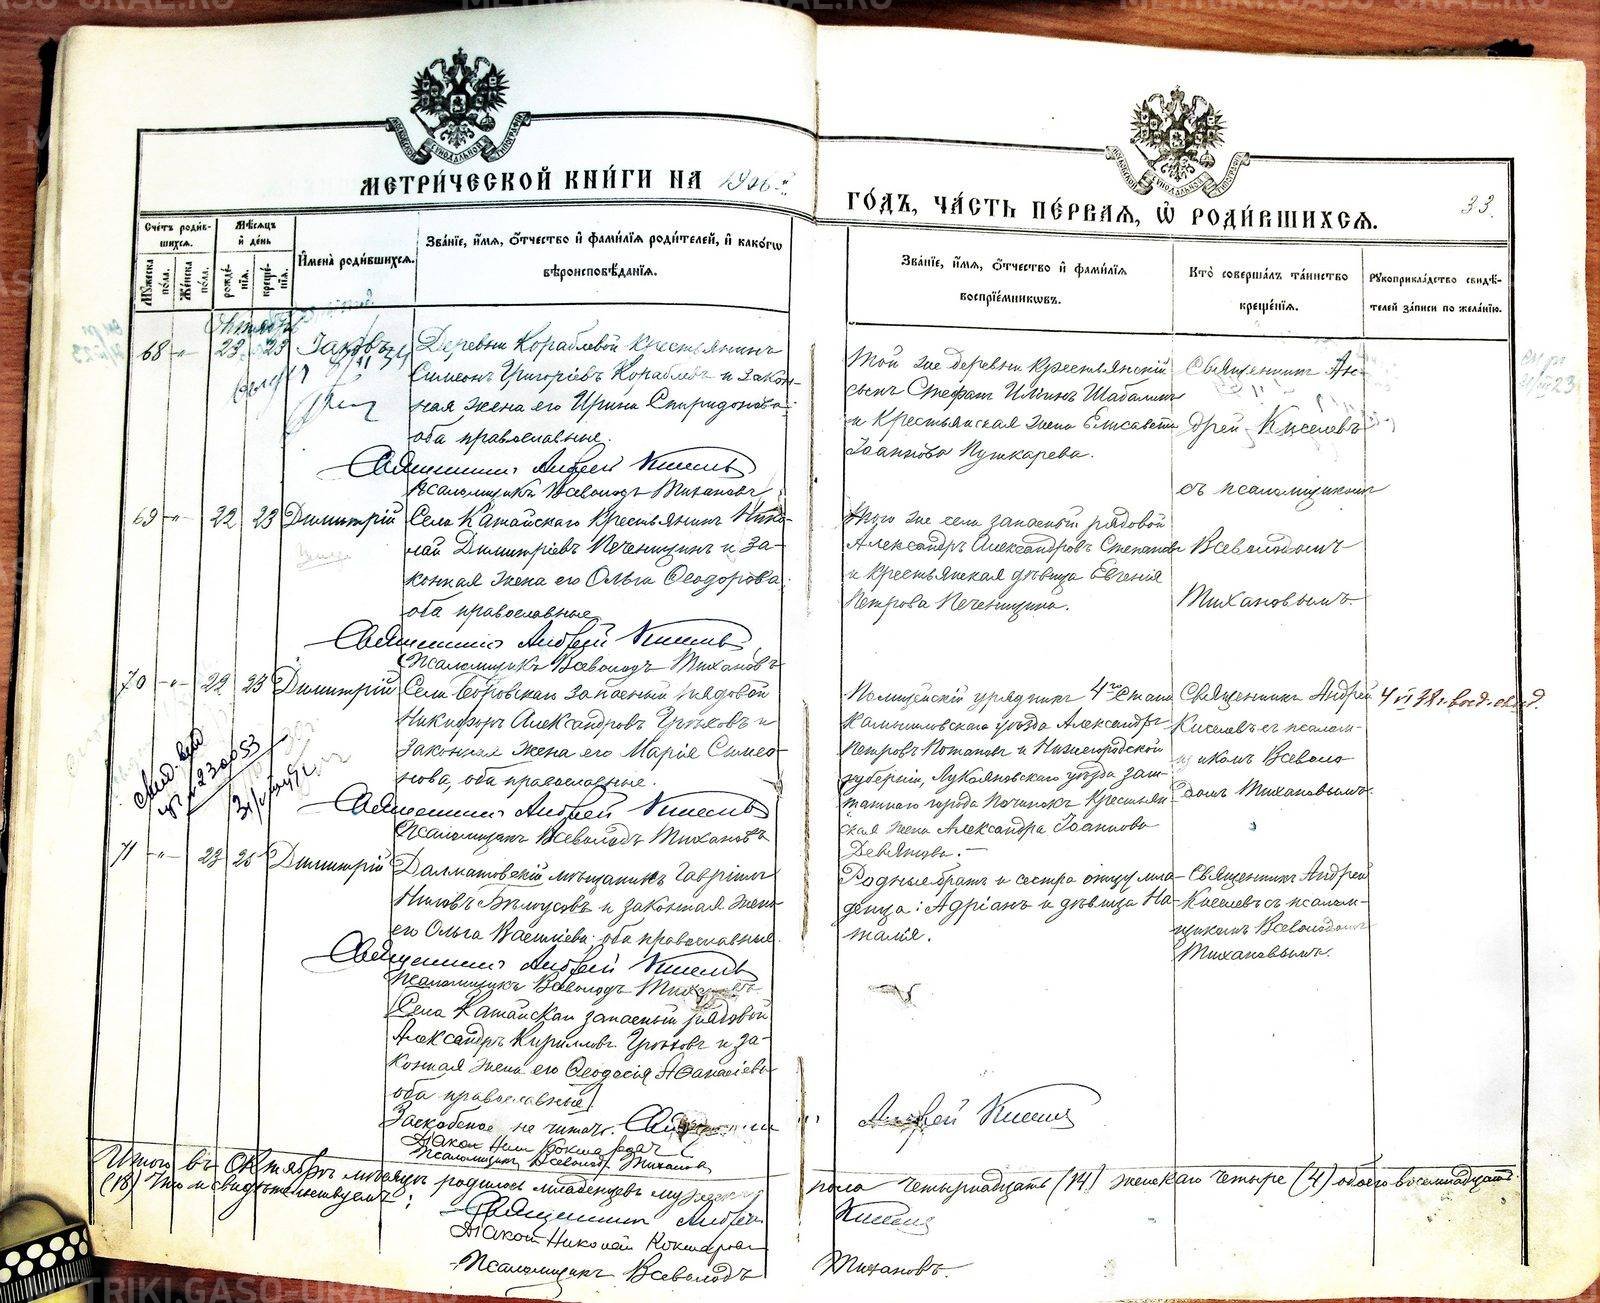 METRIKI.GASO-URAL.RU
МЕТРИ́ЧЕСКОЙ КНИ́ГИ НА 1906 й.
ГО́ДЪ, ЧА́СТЬ ПЕ́РВАЯ, Ѡ҆ РОДИ́ВШИХСЯ.
33.
Сче́тъ роди́вшихся.
Му́жеска по́ла.
Же́нска по́ла.
Мѣ́сяцъ и҆ де́нь
рожде́нїя.
креще́нїя.
И҆мена̀ роди́вшихся.
Зва́нїе, и҆́мя, ѻ҆́тчество и҆ фами́лїя роди́телей, и҆ како́гѡ
вѣроисповѣ́данїя.
Зва́нїе, и҆́мя, ѻ҆́тчество и҆ фами́лїя
воспрїе́мникѡвъ.
Кто̀ соверша́лъ та́инство
креще́нїя.
Рꙋкоприкла́дство свидѣ́телей за́писи по жела́нїю.
Октябрь
68 -„- 23 23 Іаковъ
Деревни Кораблевой крестьянинъ
Симеонъ Григоріевъ Кораблевъ и закон-
ная жена его Ирина Спиридонова
оба православные.
Священникъ Андрей Киселевъ
Псаломщикъ Всеволодъ Тихановъ
Той же деревни крестьянскій
сынъ Стефанъ Ильинъ Шабалинъ
и крестьянская жена Елисавета
Іоаннова Пушкарева.
Священникъ Ан-
дрей Киселевъ
съ псаломщикомъ
Всеволодомъ
Тихановымъ.
69 -„- 22 23 Димитрій
Села Катайскаго крестьянинъ Нико-
лай Димитріевъ Печенинъ и за-
конная жена его Ольга Ѳеодорова
оба православные
Священникъ Андрей Киселевъ
Псаломщикъ Всеволодъ Тихановъ
Того же села запасный рядовой
Александръ Александровъ Степановъ
и крестьянская дѣвица Евгенія
Петрова
70 -„- 22 23 Димитрій
запасный рядовой
Никифоръ Александровъ и
законная жена его Марія Симео-
нова, оба православные.
Священникъ Андрей Киселевъ
Псаломщикъ Всеволодъ Тихановъ
Полицейскій урядникъ 4го стана
Камышловскаго уѣзда Александръ
Петровъ Потаповъ и Нижегородской
губерніи, Лукояновскаго уѣзда заш-
татнаго города Починокъ крестьян-
ская жена Александра Іоаннова
Девятова.
Священникъ Андрей
Киселевъ съ псалом-
щикомъ Всеволо-
домъ Тихановымъ.
71 -„- 23 25 Димитрій
Далматовскій мѣщанинъ Гавріилъ
Ниловъ Бѣлоусовъ и законная жена
его Ольга Василіева оба православные
Священникъ Андрей Киселевъ
Псаломщикъ Всеволодъ Тихановъ
Родные братъ и сестра отцу мла-
денца: Адріанъ и дѣвица На-
талія.
Священникъ Андрей
Киселевъ съ псалом-
щикомъ Всеволодомъ
Тихановымъ.
запасный рядовой
Александръ Кирилловъ и за-
конная жена его Ѳеодосія Аѳанасіева
оба православные]
Заскобленное не читать. Священникъ Андрей Киселевъ
Псаломщикъ Всеволодъ Тихановъ
Итого въ Октябрѣ мѣсяцѣ родилось младенцевъ мужескаго пола четырнадцать (14) женскаго четыре (4) обоего восемнадцать
(18) Что и свидѣтельствуемъ:
Священникъ Андрей Киселевъ
Діаконъ Николай Кокшаровъ
Псаломщикъ Всеволодъ Тихановъ.